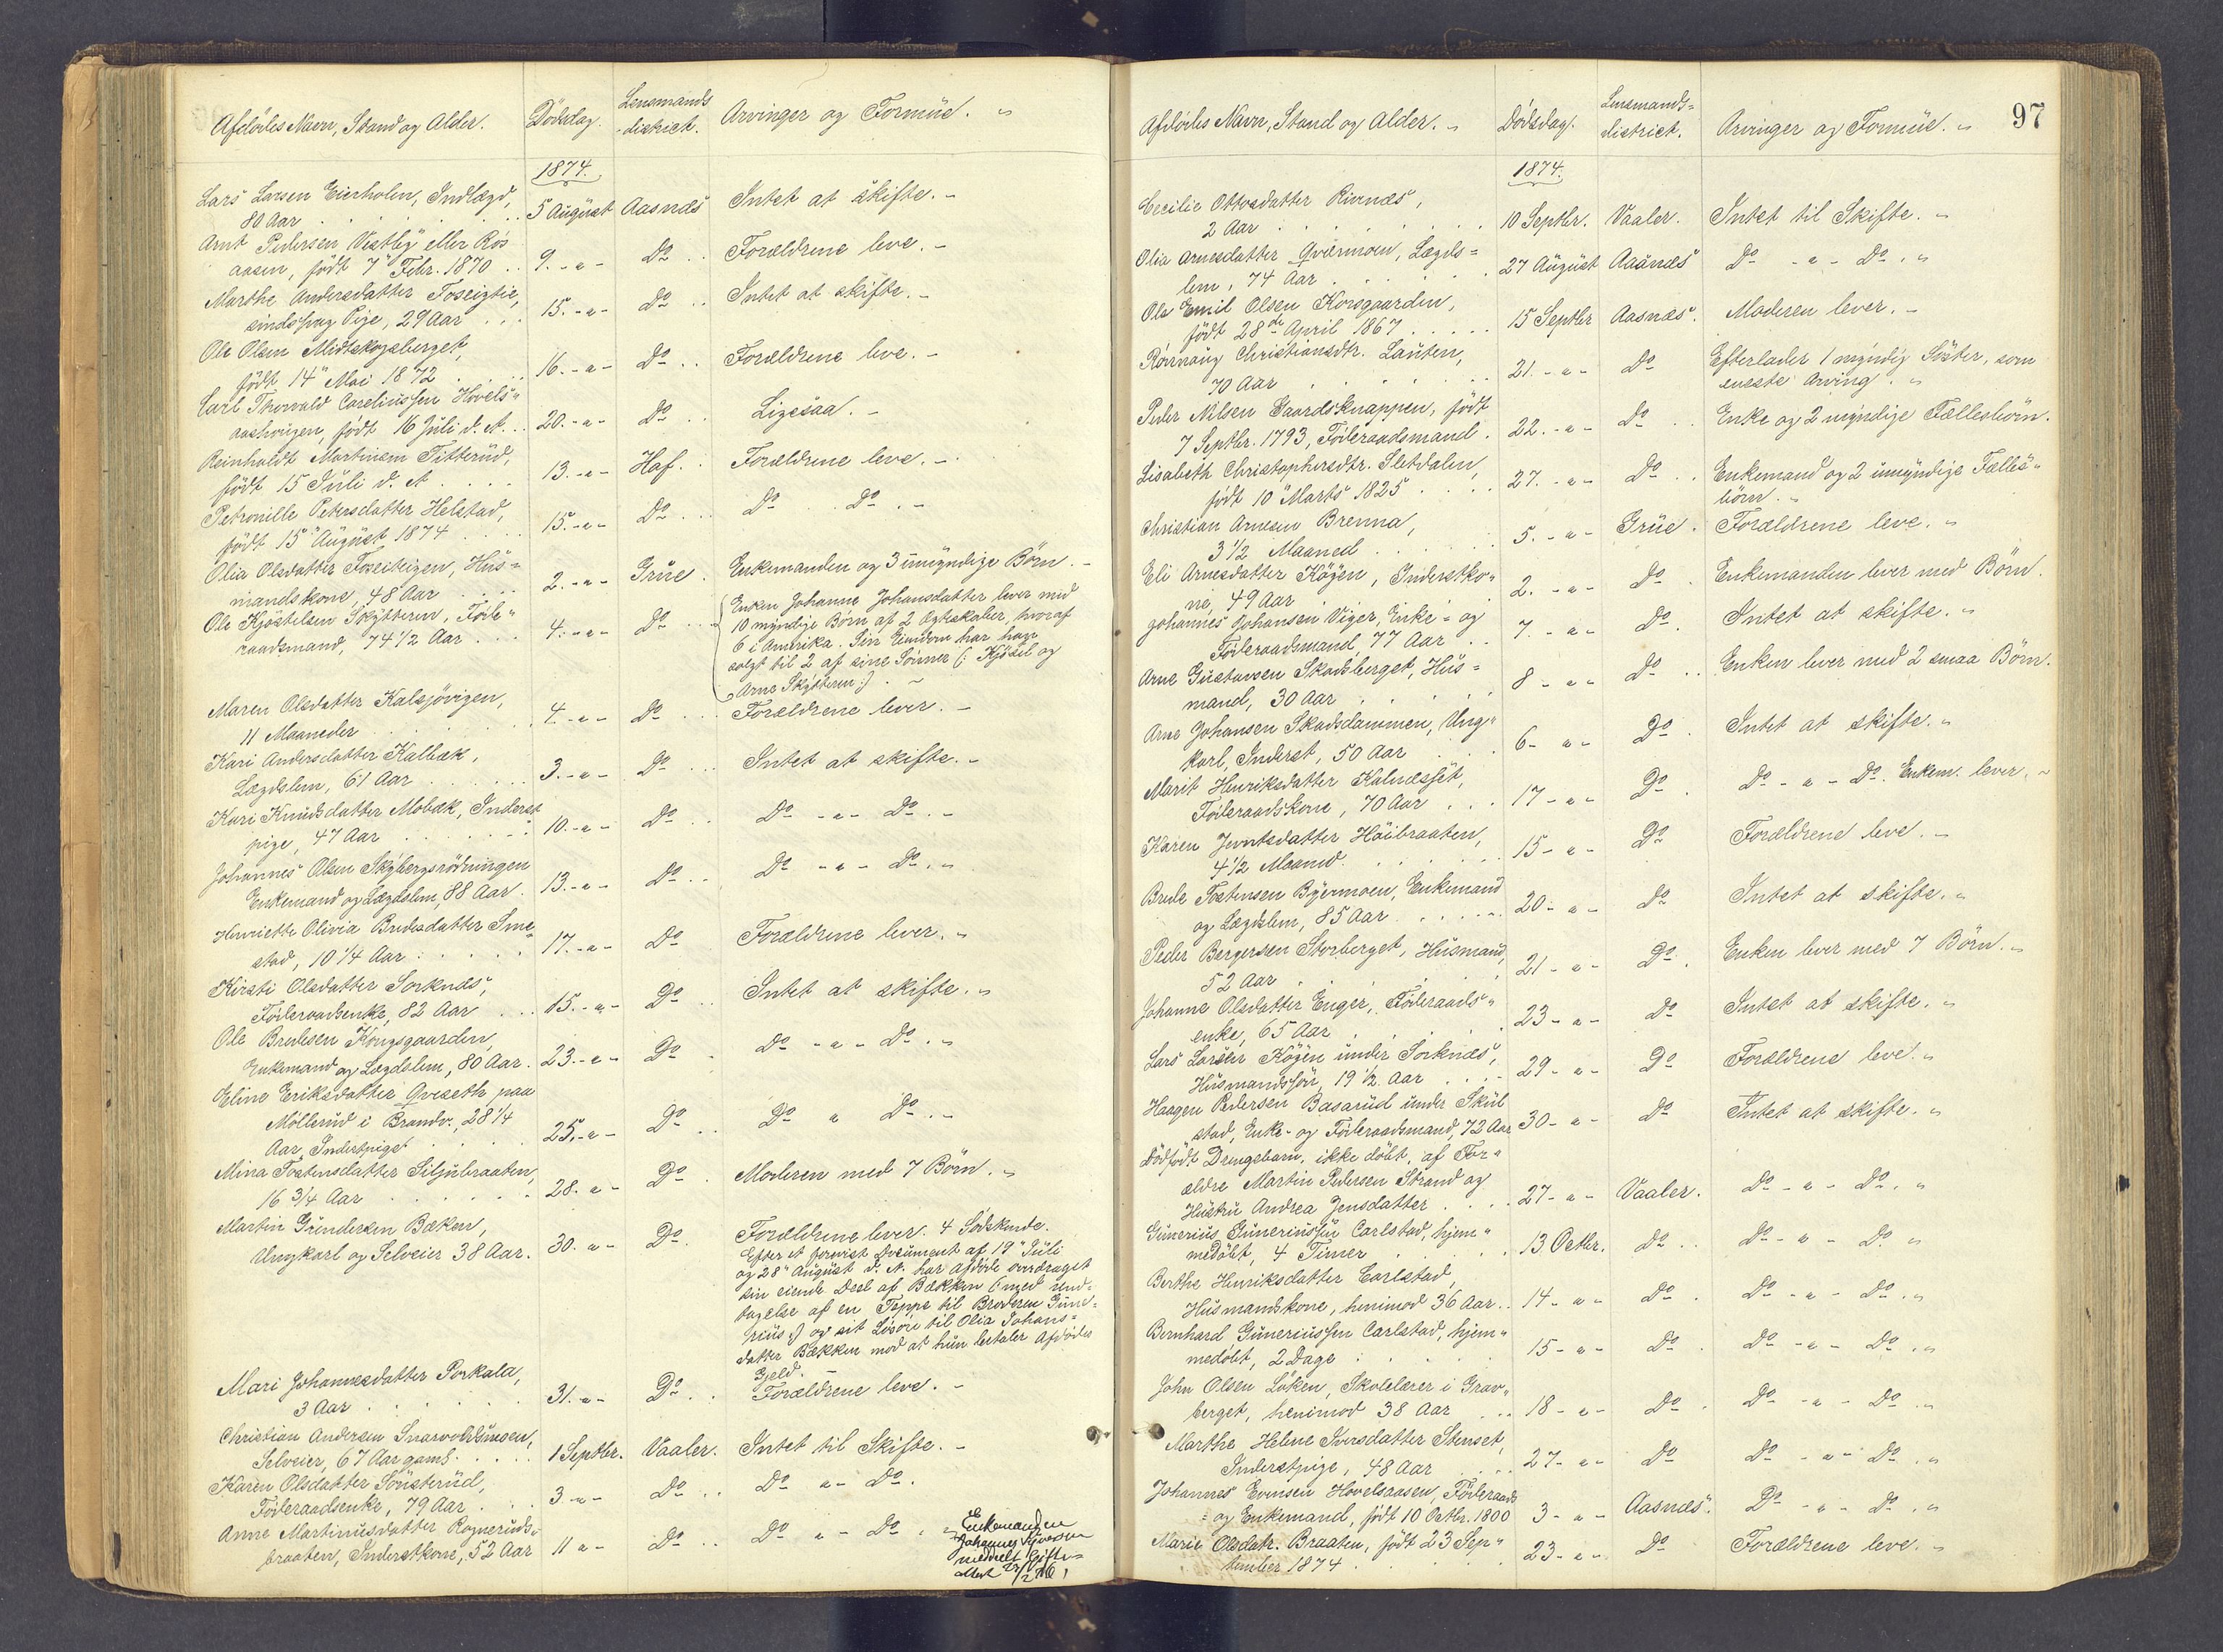 Afdödes Navn, Stand og Alder.
Dödsdag.
Lensmands
-distrikt.
Arvinger og Formüe. "
1874.
Lars Larsen Eierholen, Indlægd,
80 Aar . . . 5 August Aasnæs Intet at skifte. -
Arnt Pedersen Vestby eller Rös
aasen, födt 7" Febr. 1870 . . 9. - " - Do . . Forældrene leve. -
Marthe Andersdatter
sindssvag Pige, 29 Aar . . . 15. - " - Do . . Intet at skifte. -
Ole Olsen Midtskogsberget,
födt 14" Mai 1872 . . . 16. - " - Do . . Forældrene leve. -
Carl Thorvald Careliussen Hovels"
aashougen, födt 16 Juli d. A. . . 20. - " - Do . . Ligesaa. -
Reinholdt Martinsen Titterud,
födt 15 Juli d. A . . . . 13. - " - Hof. . Forældrene leve. -
Petronille Petersdatter Helstad,
födt 15" August 1874 . . . . 15. - " - Do . . . Do . . Do . -
Olia Olsdatter Hus=
mandskone, 48 Aar . . . . 2. - " - Grue . Enkemanden og 3 umyndige Börn. -
Ole Kjöstelsen Skytteren, Föde"
raadsmand, 74 1/2 Aar . . . 4. - " - Do . . .
Enken Johanne Johansdatter lever med
10 myndige Börn af 2 Ægteskaber, hvoraf
6 i Amerika. Sin Eiendom har han
solgt til 2 af sine Sönner (: Kjöstel og
Arne Skytteren :) . -
Maren Olsdatter Kalsjövigen,
11 Maaneder . . . 4. - " - Do . . . Forældrene lever. -
Kari Andersdatter Kalbæk,
Lægdslem, 61 Aar . . . . 3. - " - Do . . . Intet at skifte. -
Kari Knudsdatter Mobæk, Inderst
pige, 47 Aar . . . . 10. - " - Do . . Do - " - Do . -
Johannes Olsen Skybergsrödningen
Enkemand og Lægdslem, 88 Aar . 13. - " - Do . . Do - " - Do . "
Henriette Olivia Bredesdatter Sme=
stad, 10 1/4 Aar . . . . 17. - " - Do Forældrene lever. "
Kirsti Olsdatter Sorknæs,
Föderaadsenke, 82 Aar . . . 15. - " - Do . . Intet at skifte. "
Ole Bredesen Kongsgaarden,
Enkemand og Lægdslem, 80 Aar . 23. - " - Do . Do - " - Do . "
Eline Eriksdatter Qveseth paa
Möllerud i Brandv., 28 1/4
Aar, Inderstpige . . . 25. - " - Do . . Do " Do . -
Mina Tostensdatter Siljubraaten,
16 3/4 Aar . . . . 28. " - Do . Moderen med 7 Börn. "
Martin Gundersen Bæken,
Ungkarl og Selveier 38 Aar. 30. " - Do . Forældrene lever. 4 Södskende.
Efter et forevist Document af 19" Juli
og 28" August d. A. har Afdöde overdraget
sin eiende Deel af Bækken (: med und-
tagelse af en Teppe til Broderen Gune-
rius :) og sit Lösöre til Olia Johans=
datter Bækken mod at hun betaler Afdödes
Gjeld. -
Mari Johannesdatter Porkala,
3 Aar . . . . . 31. - " - Do . . Forældrene leve. -
Christian Andersen
Selveier, 67 Aar gaml. . . . . 1 Septbr. Vaaler. Intet til Skifte. -
Karen Olsdatter Sönsterud,
Föderaadsenke, 79 Aar . . . 3 - " - Do . . Do " - Do .
Anne Martinusdatter Rogneruds-
braaten, Inderstkone, 52 Aar 11 " - Do . . Do " - Do . "
Enkemanden
Johannes
meddelt Gifte=
97
Afdödes Navn, Stand og Alder. "
Dödsdag.
Lensmands=
district.
Arvinger og Formüe. "
1874.
Cecilie Ottosdatter Risnæs,
2 Aar . . . . . . . 10 Septbr. Vaaler. Intet til Skifte. "
Olia Arnesdatter Qværnmoen, Lægds=
lem, 74 Aar . . . . 27 August Aasnæs Do - " - Do . "
Ole Emil Olsen Korsgaarden,
födt 28de April 1867 . . . . . 15 Septbr Aasnæs. Moderen lever. -
Rönnaug Christiansdtr. Lauten,
70 Aar . . . . . . . 21. - " - Do Efterlader 1 myndig Söster, som
eneste Arving. "
Peder Nilsen Gaardsknappen, födt
7 Septbr. 1793, Föderaadsmand . 22. - " - Do . . Enke og 2 myndige Fællesbörn.
Lisabeth Christophersdtr. Sletdalen,
födt 10" Marts 1825 . . . . . 27. - " - Do . . Enkemand og 2 umyndige Fælles"
börn. "
Christian Arnesen Brenna,
3 1/2 Maaned . . . . . . 5. - " - Grue . Forældrene leve. "
Eli Arnesdatter Köyen, Inderstko"
ne, 49 Aar . . . . . 2. - " - Do . Enkemanden lever med Börn.
Johannes Johansen Viger, Enke- og
Föderaadsmand, 77 Aar . . 7. - " - Do . Intet at skifte. "
Arne Gustavsen Skadsberget, Hus=
mand, 30 Aar . . . . 8 - " - Do . . Enken lever med 2 smaa Börn.
Arne Johansen Skadsdammen, Ung"
karl, Inderst, 50 Aar . . . 6 - " - Do . Intet at skifte. "
Marit Henriksdatter Kalnæsset,
Föderaadskone, 70 Aar . . . 17 - " - Do . Do - " - Do . Enkem. lever. -
Karen Jerntsdatter Höibraaten,
4 1/2 Maaned . . . . . . 15 - " - Do Forældrene leve. -
Brede Tostensen Byermoen, Enkemand
og Lægdslem, 85 Aar . . . . 20 - " - Do Intet at skifte. "
Peder Bergersen Storberget, Husmand,
52 Aar . . . . 21 - " - Do . Enken lever med 7 Börn. "
Johanne Olsdatter Enger, Föderaads"
enke, 65 Aar . . . . . 23 - " - Do Intet at skifte. "
Lars Larsen Köyen under Sorknæs,
Husmandssön, 19 1/2 Aar . . . 29 - " - Do Forældrene leve. "
Haagen Pedersen Basarud under Skul
stad, Enke- og Föderaadsmand, 72 Aar 30 - " - Do Intet at skifte. "
Dödfödt Drengebarn, ikke döbt, af For"
ældre Martin Pedersen Strand og
Hustru Andrea Jensdatter . . . . 27 - " - Vaaler. Do - " - Do . "
Gunerius Guneriussen Carlstad, hjem"
medöbt, 4 Timer . . . . 13 Octbr. Do . . Do - " - Do . "
Berthe Henriksdatter Carlstad,
Husmandskone, henimod 36 Aar . . 14 - " - Do . Do - " - Do . "
Bernhard Guneriussen Carlstad, hjem"
medöbt, 2 Dage . . . . 15 - " - Do . Do - " - Do . "
John Olsen Löken, Skolelærer i Grav"
berget, henimod 38 Aar . . . 18 - " - Do . Do - " - Do . "
Marthe Helene Iversdatter Stenset,
Inderstpige, 48 Aar . . . . 27 - " - Do Do - " - Do . "
Johannes Evensen Hovelsaasen, Föderaads
= og Enkemand, födt 10 Octbr. 1800 3 - " - Aasnæs. Do - " - Do . "
Marie Olsdatr. Braaten, födt 23 Sep"
tember 1874 . . . . 23 - " - Do Forældrene leve. "